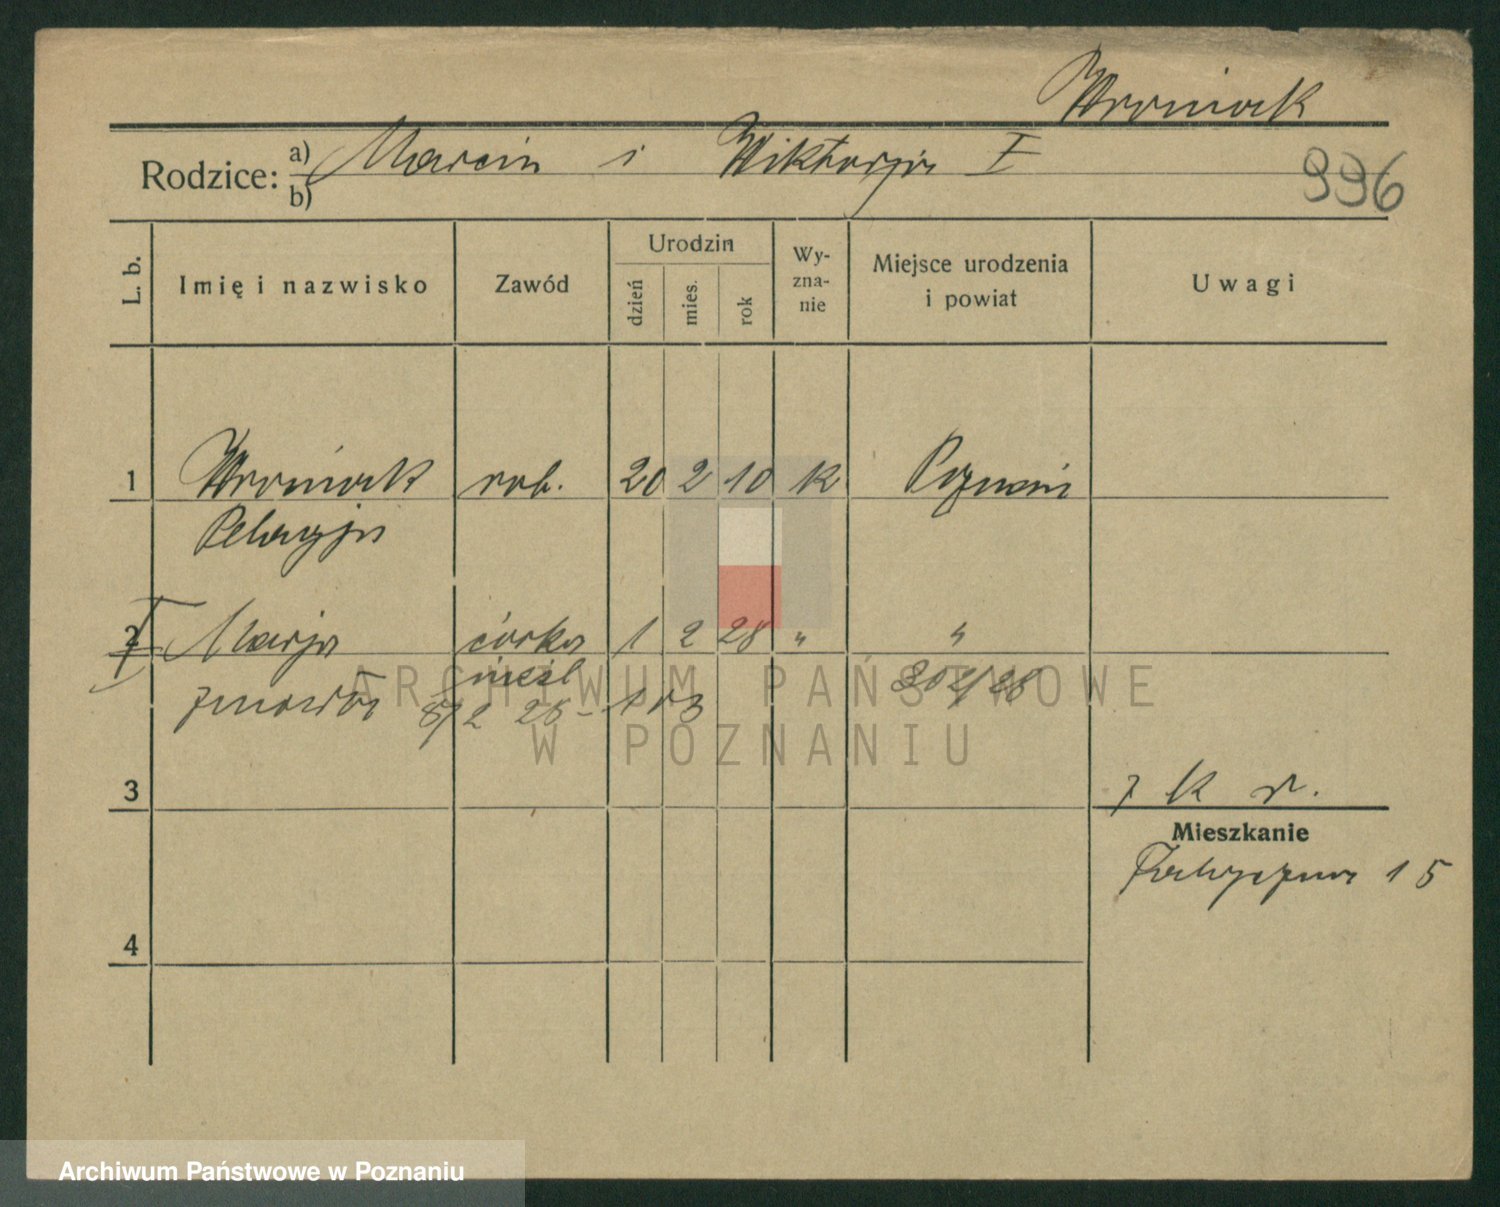 Wroniak
Rodzice: a) Marcin i Wiktorja I
b)
996
L. b. Imię i nazwisko Zawód Urodzin dzień mies. rok Wy-zna-nie Miejsce urodzenia i powiat Uwagi
1 Wroniak rob. 20 2 10 k Poznań
Pelagja
2 Marja córka 1 2 28 " "
nieśl 302/28
zmarła 8/2 28 -
3
7 k r.
Mieszkanie
15
4
ARCHIWUM PAŃSTWOWE
W POZNANIU
Archiwum Państwowe w Poznaniu